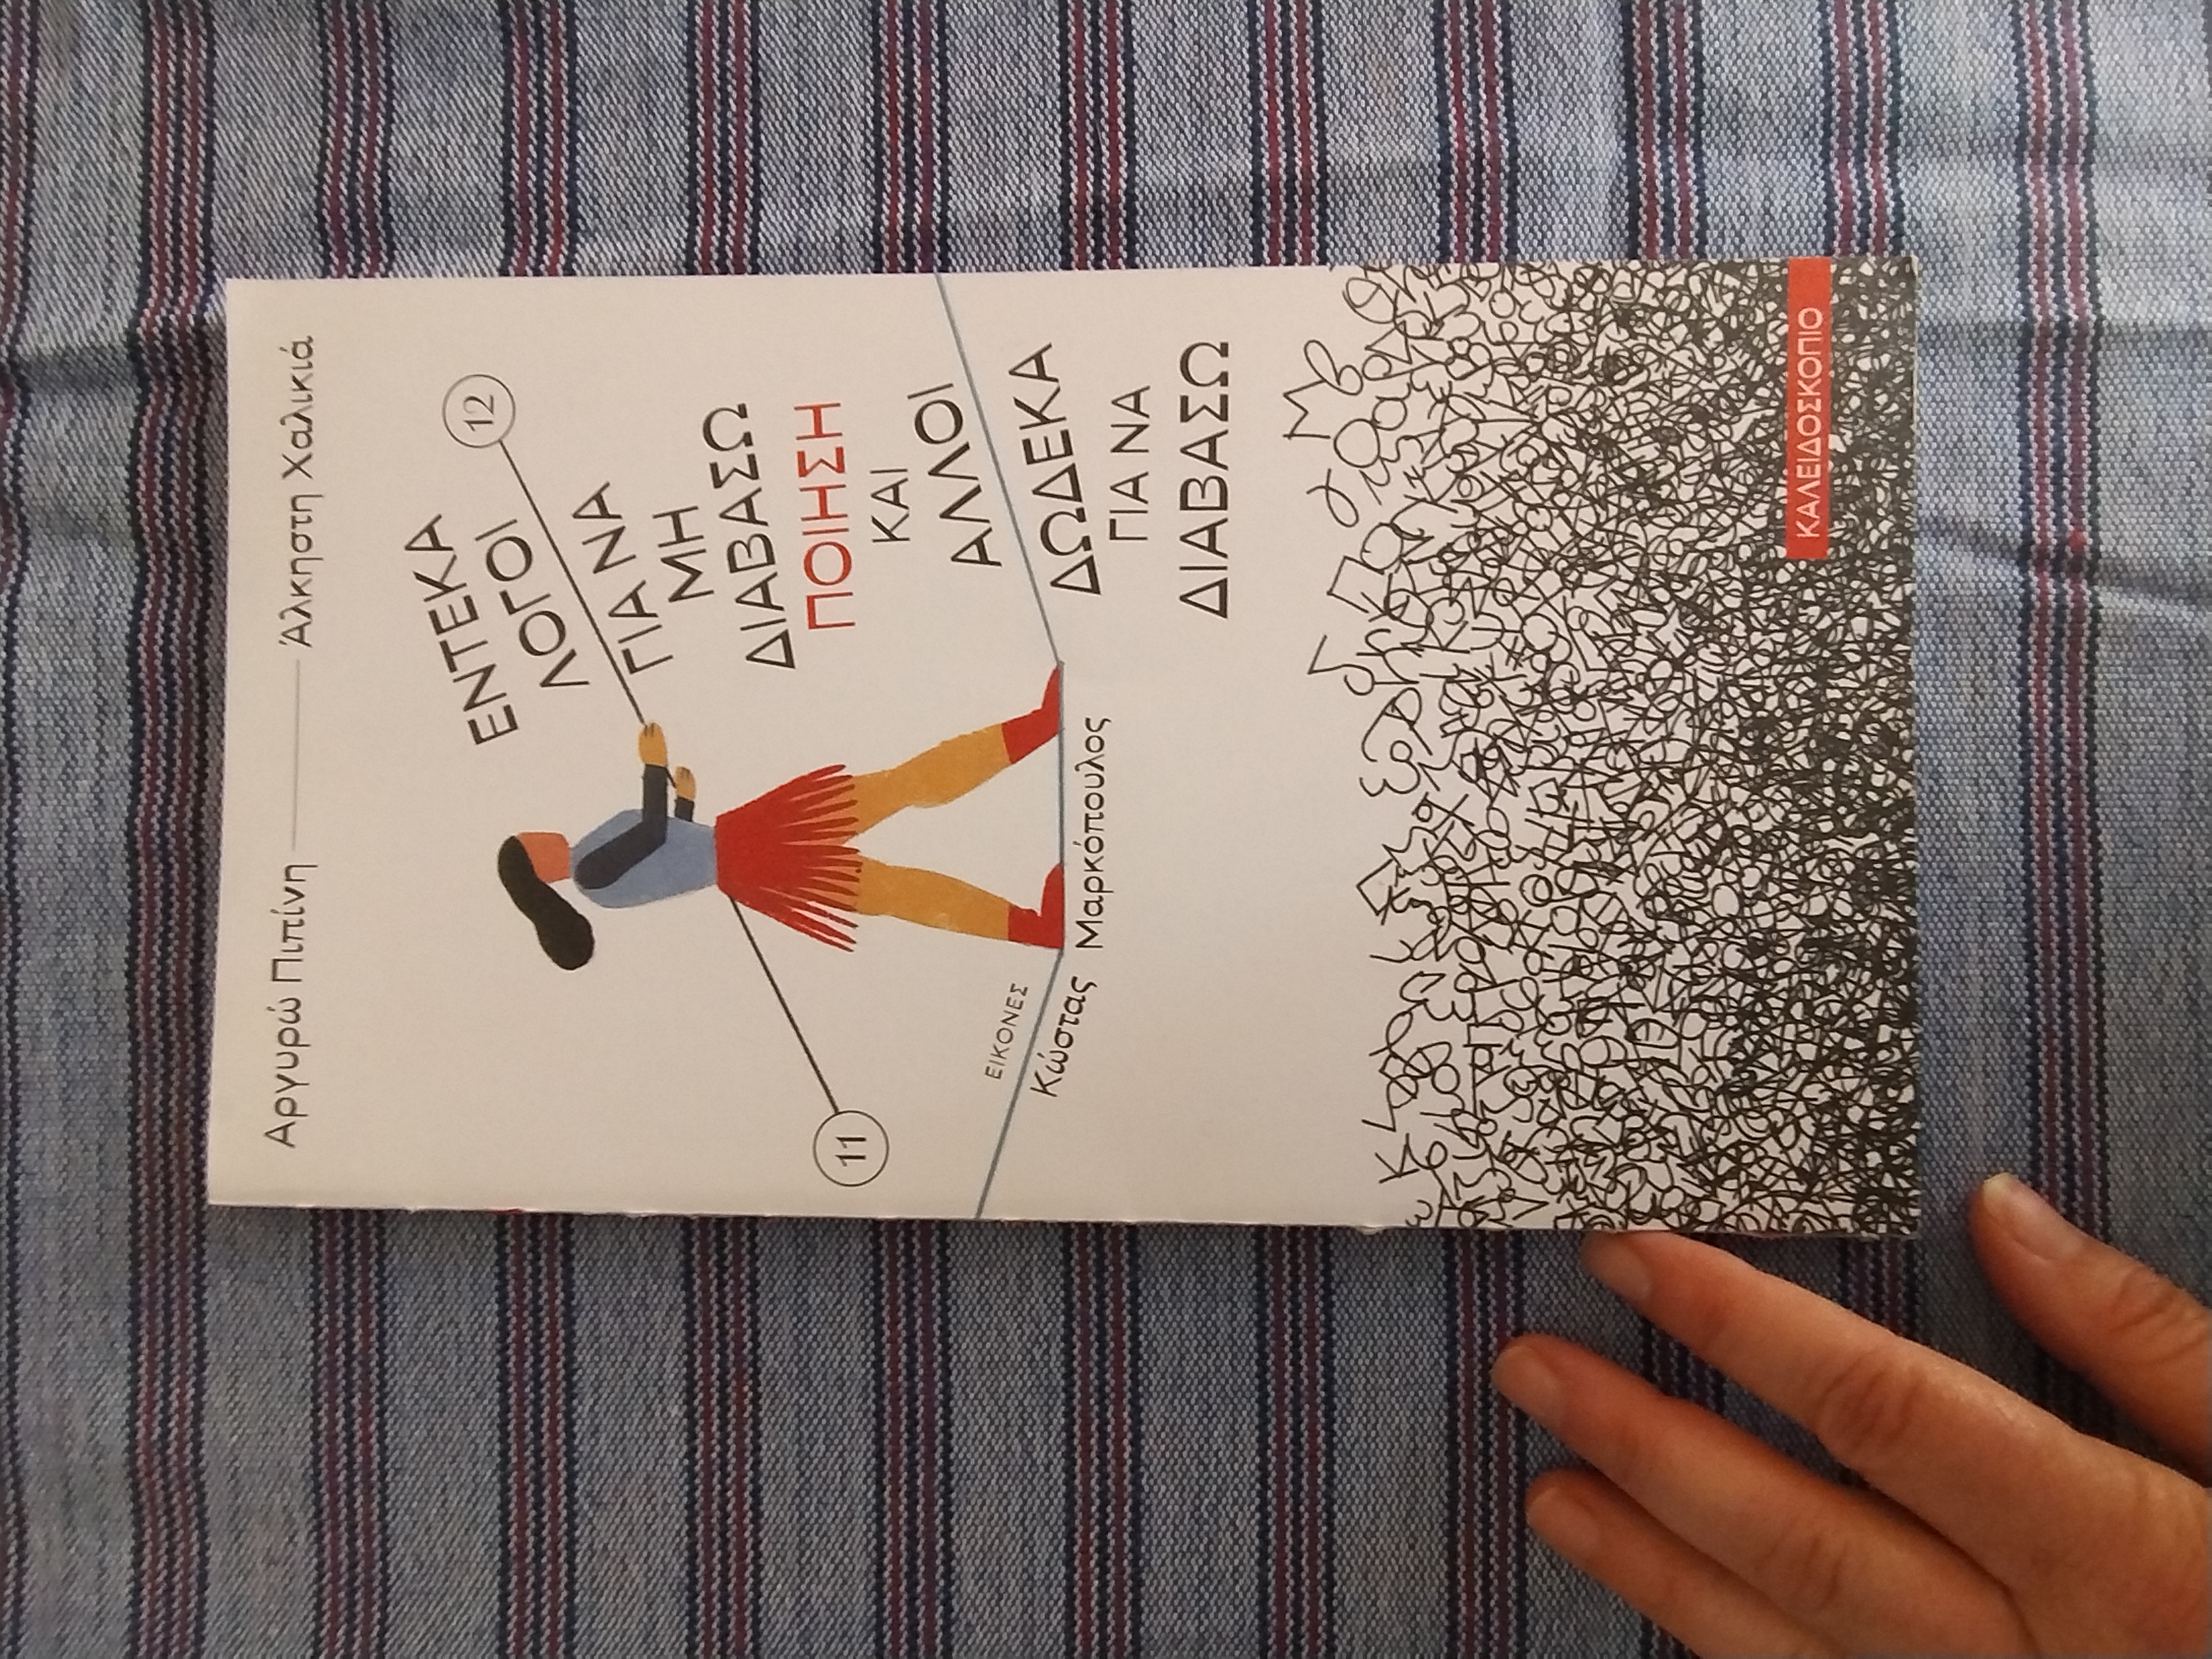 Αργυρώ Πιπίνη — Άλκηστη Χαλικιά
12
ΕΝΤΕΚΑ
ΛΟΓΟΙ
ΓΙΑ ΝΑ
ΜΗ
ΔΙΑΒΑΣΩ
ΠΟΙΗΣΗ
ΚΑΙ
ΑΛΛΟΙ
ΔΩΔΕΚΑ
ΓΙΑ ΝΑ
ΔΙΑΒΑΣΩ
11
ΕΙΚΟΝΕΣ
Κώστας Μαρκόπουλος
ΚΑΛΕΙΔΟΣΚΟΠΙΟ